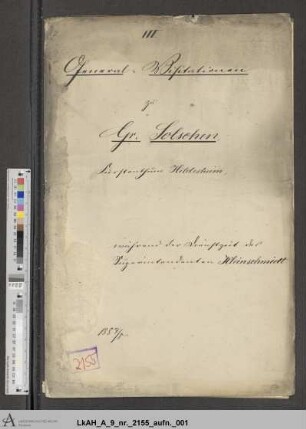 III
General-Visitationen
Gr. Solschen
Fürstenthum Hildesheim,
während der Dienstzeit des
Superintendenten Kleinschmidt
185
2155
LkAH_A_9_nr._2155_aufn._001